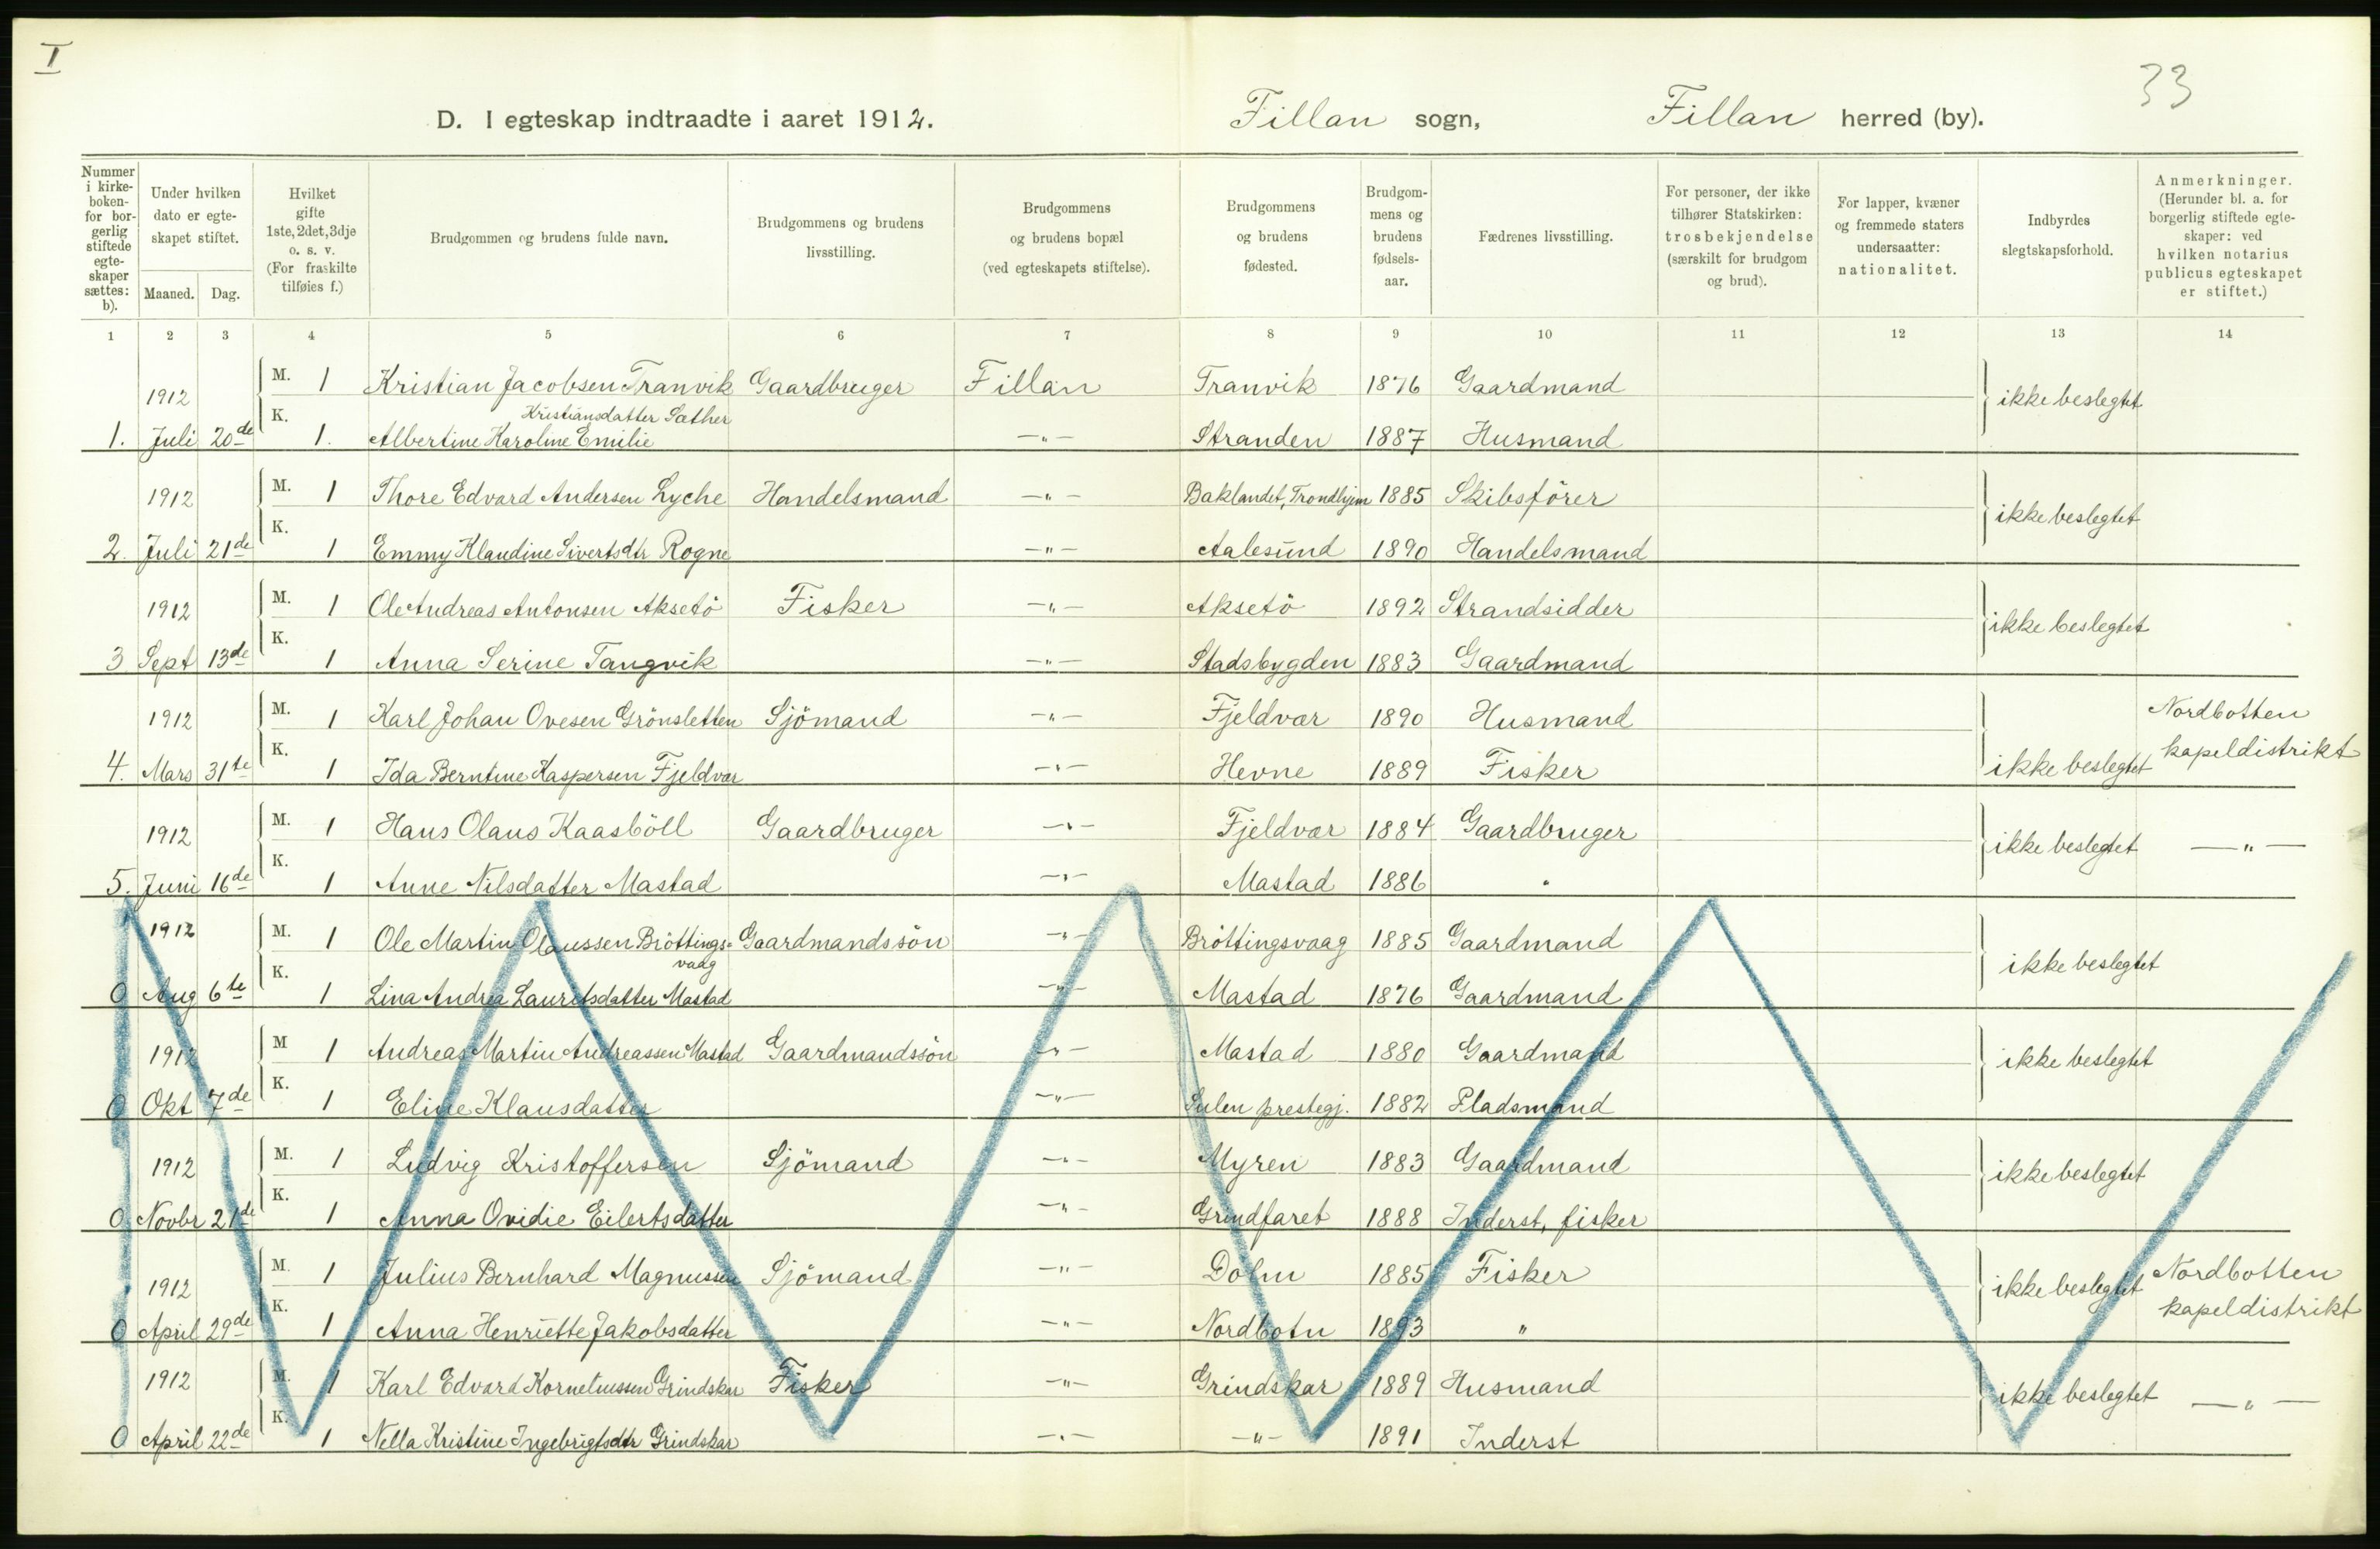 I
33
D. I egteskap indtraadte i aaret 1912. Fillan sogn, Fillan herred (by).
Nummer i kirke-boken- for bor-gerlig stiftede egte-skaper sættes: b).
Under hvilken dato er egte-skapet stiftet.
Maaned. Dag.
Hvilket gifte 1ste, 2det, 3dje o. s. v. (For fraskilte tilføies f.)
Brudgommen og brudens fulde navn.
Brudgommens og brudens livsstilling.
Brudgommens og brudens bopæl (ved egteskapets stiftelse).
Brudgommens og brudens fødested.
Brudgom-mens og brudens fødsels-aar.
Fædrenes livsstilling.
For personer, der ikke tilhører Statskirken: trosbekjendelse (særskilt for brudgom og brud).
For lapper, kvæner og fremmede staters undersaatter: nationalitet.
Indbyrdes slegtskapsforhold.
Anmerkninger. (Herunder bl. a. for borgerlig stiftede egte-skaper: ved hvilken notarius publicus egteskapet er stiftet.)
1 2 3 4 5 6 7 8 9 10 11 12 13 14
1912 M. 1 Kristian Jacobsen Tranvik Gaardbruger Fillan Tranvik 1876 Gaardmand ikke beslegtet
Kristiansdatter Sæther
1. Juli 20de K. 1. Albertine Karoline Emilie —"— Stranden 1887 Husmand
1912 M. 1 Thore Edvard Andersen Lyche Handelsmand —"— Baklandet, Trondhjem 1885 Skibsförer ikke beslegtet
2. Juli 21de K. 1 Emmy Klaudine Sivertsdtr Rogne —"— Aalesund 1890 Handelsmand
1912 M. 1 Ole Andreas Antonsen Aksetö Fisker —"— Aksetö 1892 Strandsidder ikke beslegtet
3 Sept 13de K. 1 Anna Serine Tangvik —"— Stadsbygden 1883 Gaardmand
1912 M. 1 Karl Johan Ovesen Grönsletten Sjömand —"— Fjeldvær 1890 Husmand Nordbotten
4. Mars 31te K. 1 Ida Berntine Kaspersen Fjeldvær —"— Hevne 1889 Fisker ikke beslegtet kapeldistrikt
1912 M. 1 Hans Olaus Kaasböll Gaardbruger —"— Fjeldvær 1884 Gaardbruger ikke beslegtet —"—
5. Juni 16de K. 1 Anne Nilsdatter Mastad —"— Mastad 1886 "
1912 M. 1 Ole Martin Olaussen Bröttings= Gaardmandssön —"— Bröttingsvaag 1885 Gaardmand ikke beslegtet
vaag
0 Aug 6te K. 1 Lina Andrea Lauritsdatter Mastad —"— Mastad 1876 Gaardmand
1912 M 1 Andreas Martin Andreassen Mastad Gaardmandssön —"— Mastad 1880 Gaardmand ikke beslegtet
0 Okt 7de K. 1 Eline Klausdatter —"— Sulen prestegj. 1882 Pladsmand
1912 M. 1 Ludvig Kristoffersen Sjömand —"— Myren 1883 Gaardmand ikke beslegtet
0 Novbr 21de K. 1 Anna Ovidie Eilertsdatter —"— Grindfaret 1888 Inderst, fisker
1912 M. 1 Julius Bernhard Magnussen Sjömand —"— Dolm 1885 Fisker ikke beslegtet Nordbotten
0 April 29de K. 1 Anna Henriette Jakobsdatter —"— Nordbotn 1893 " kapeldistrikt
1912 M. 1 Karl Edvard Korneliussen Grindskar Fisker —"— Grindskar 1889 Husmand ikke beslegtet —"—
0 April 22de K. 1 Nella Kristine Ingebrigtsdtr Grindskar —"— —"— 1891 Inderst